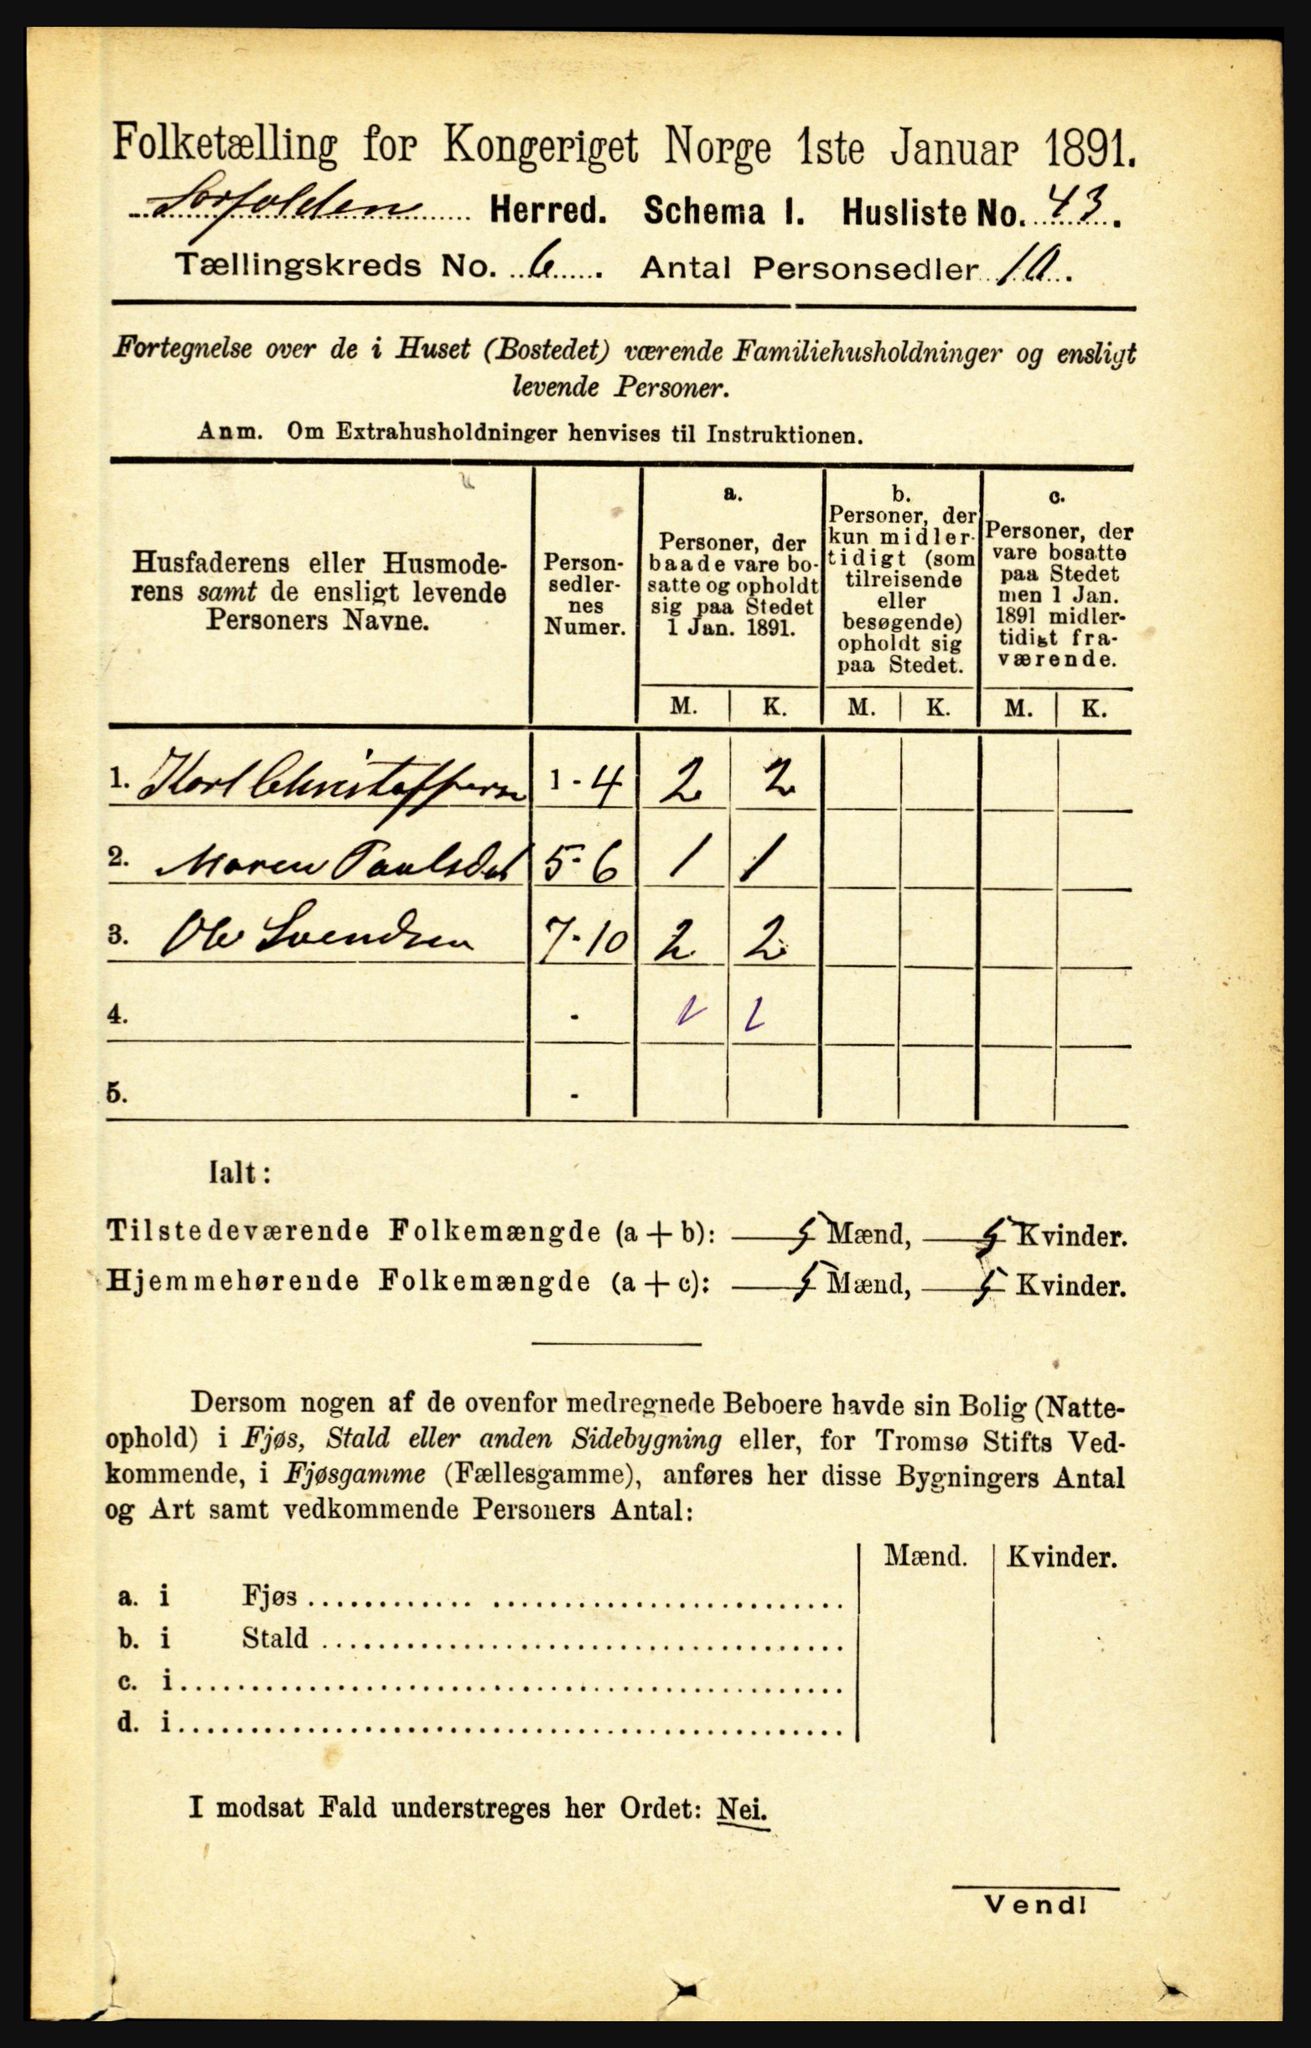 Folketælling for Kongeriget Norge 1ste Januar 1891.
Sørfolden Herred. Schema I. Husliste No. 43.
Tællingskreds No. 6. Antal Personsedler 10.
Fortegnelse over de i Huset (Bostedet) værende Familiehusholdninger og ensligt
levende Personer.
Anm. Om Extrahusholdninger henvises til Instruktionen.
Husfaderens eller Husmode-
rens samt de ensligt levende
Personers Navne.
Person-
sedler-
nes
Numer.
a.
Personer, der
baade vare bo-
satte og opholdt
sig paa Stedet
1 Jan. 1891.
b.
Personer, der
kun midler-
tidigt (som
tilreisende
eller
besøgende)
opholdt sig
paa Stedet.
c.
Personer, der
vare bosatte
paa Stedet
men 1 Jan.
1891 midler-
tidigt fra-
værende.
M. K. M. K. M. K.
1. Karl Christoffersen 1 - 4 2 2
2. Maren Paulsdat 5 - 6 1 1
3. Ole Svendsen 7 - 10 2 2
4. - 1 1
5. -
Ialt:
Tilstedeværende Folkemængde (a + b): 5 Mænd, 5 Kvinder.
Hjemmehørende Folkemængde (a + c): 5 Mænd, 5 Kvinder.
Dersom nogen af de ovenfor medregnede Beboere havde sin Bolig (Natte-
ophold) i Fjøs, Stald eller anden Sidebygning eller, for Tromsø Stifts Ved-
kommende, i Fjøsgamme (Fællesgamme), anføres her disse Bygningers Antal
og Art samt vedkommende Personers Antal:
Mænd. Kvinder.
a. i Fjøs
b. i Stald
c. i
d. i
I modsat Fald understreges her Ordet: Nei.
Vend!